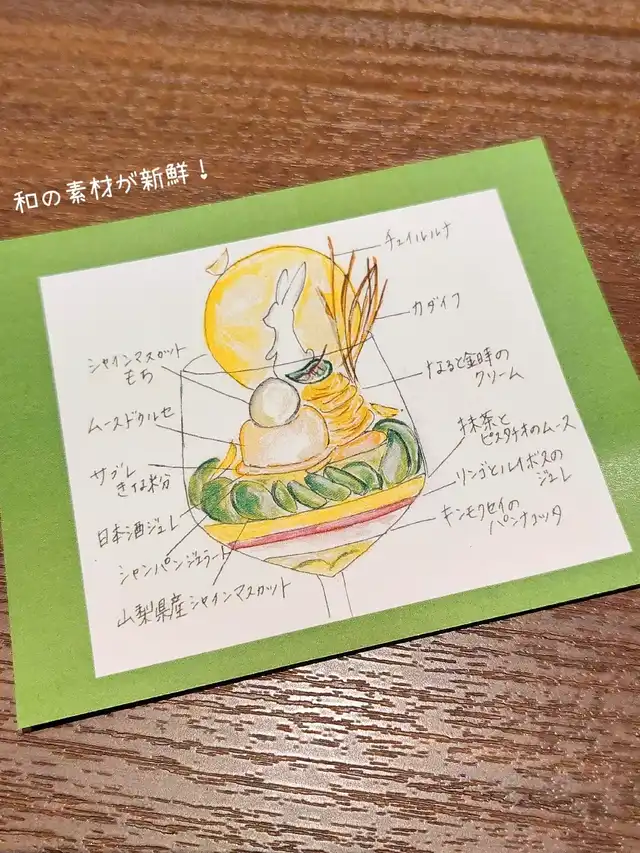 和の素材が新鮮！
チュイルルナ
カダイフ
なると金時の
クリーム
抹茶と
ピスタチオのムース
リンゴとルイボスの
ジュレ
キンモクセイの
パンナコッタ
シャインマスカット
もち
ムースドゥルセ
サブレ
きな粉
日本酒ジュレ
シャンパンジェラート
山梨県産シャインマスカット